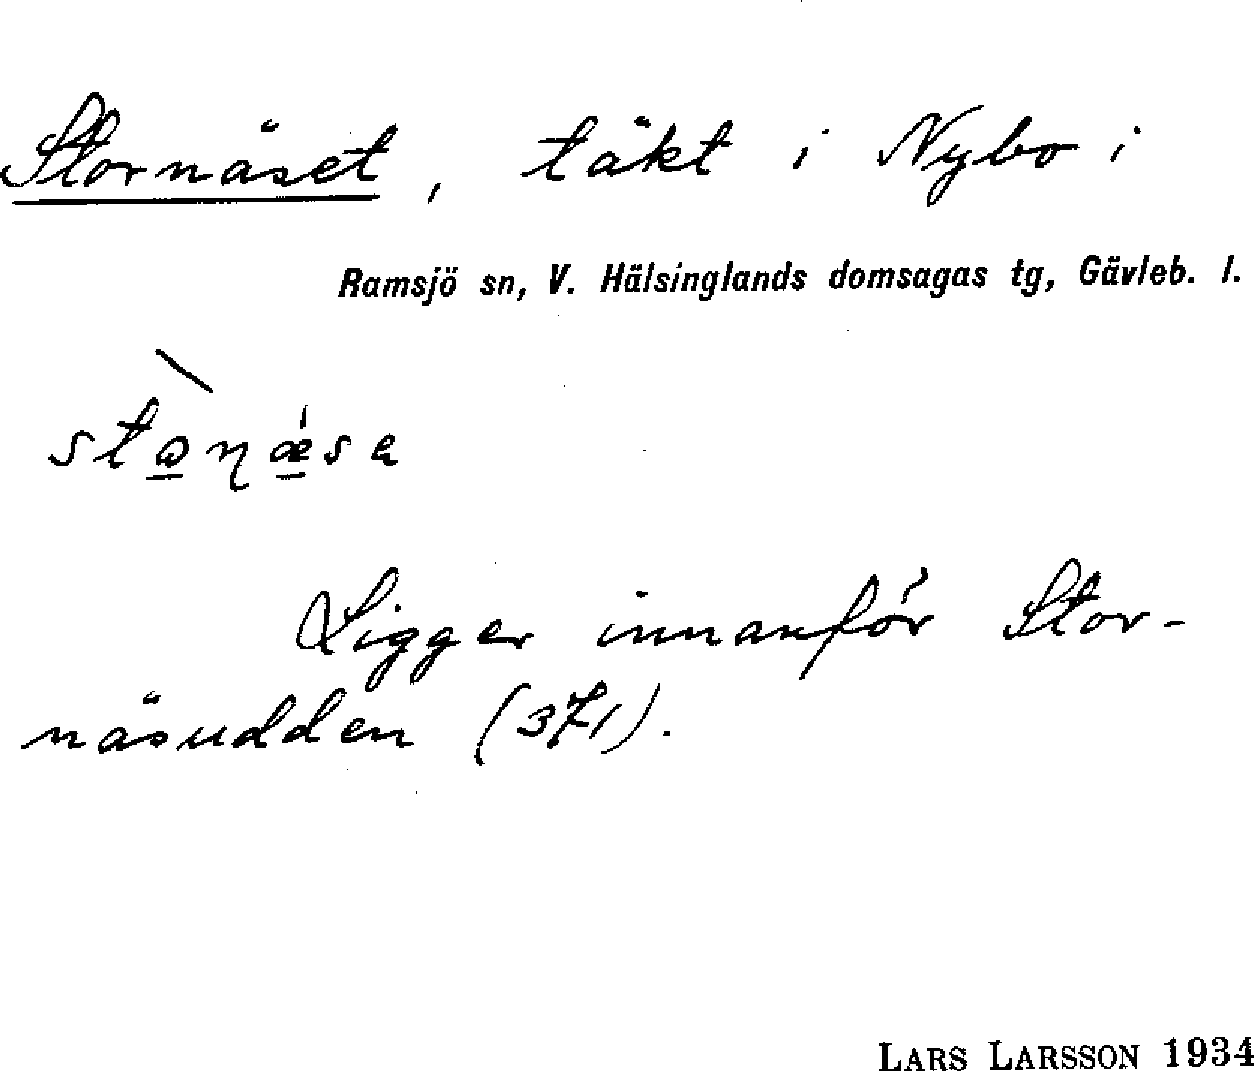 Stornäset, täkt i Nybo i
Ramsjö sn, V. Hälsinglands domsagas tg, Gävleb. l.
Ligger innanför Stor-
näsudden (371).
LARS LARSSON 1934